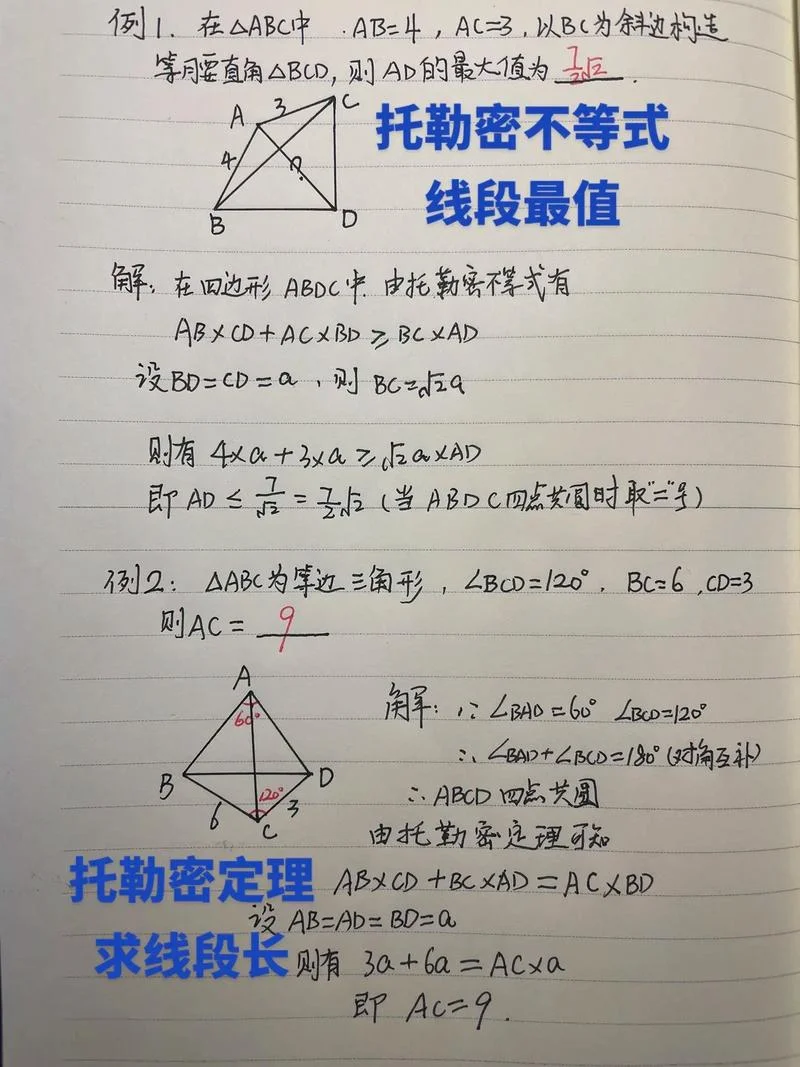 例1. 在△ABC中. AB=4, AC=3, 以BC为斜边构造
等腰直角△BCD, 则AD的最大值为 7/2√2.
A 3 C
4 ?
B D
托勒密不等式
线段最值
解: 在四边形ABDC中. 由托勒密不等式有
AB×CD+AC×BD≥BC×AD
设BD=CD=a, 则BC=√2a
则有 4×a+3×a≥√2a×AD
即AD≤7/√2=7/2√2 (当ABDC四点共圆时取"="号)
例2: △ABC为等边三角形, ∠BCD=120°. BC=6, CD=3
则AC= 9
A
60°
B D
120°
6 3
C
解: ∵∠BAD=60° ∠BCD=120°
∴∠BAD+∠BCD=180°(对角互补)
∴ABCD四点共圆
由托勒密定理可知
托勒密定理
AB×CD+BC×AD=AC×BD
设AB=AD=BD=a
求线段长
则有 3a+6a=AC×a
即 AC=9.